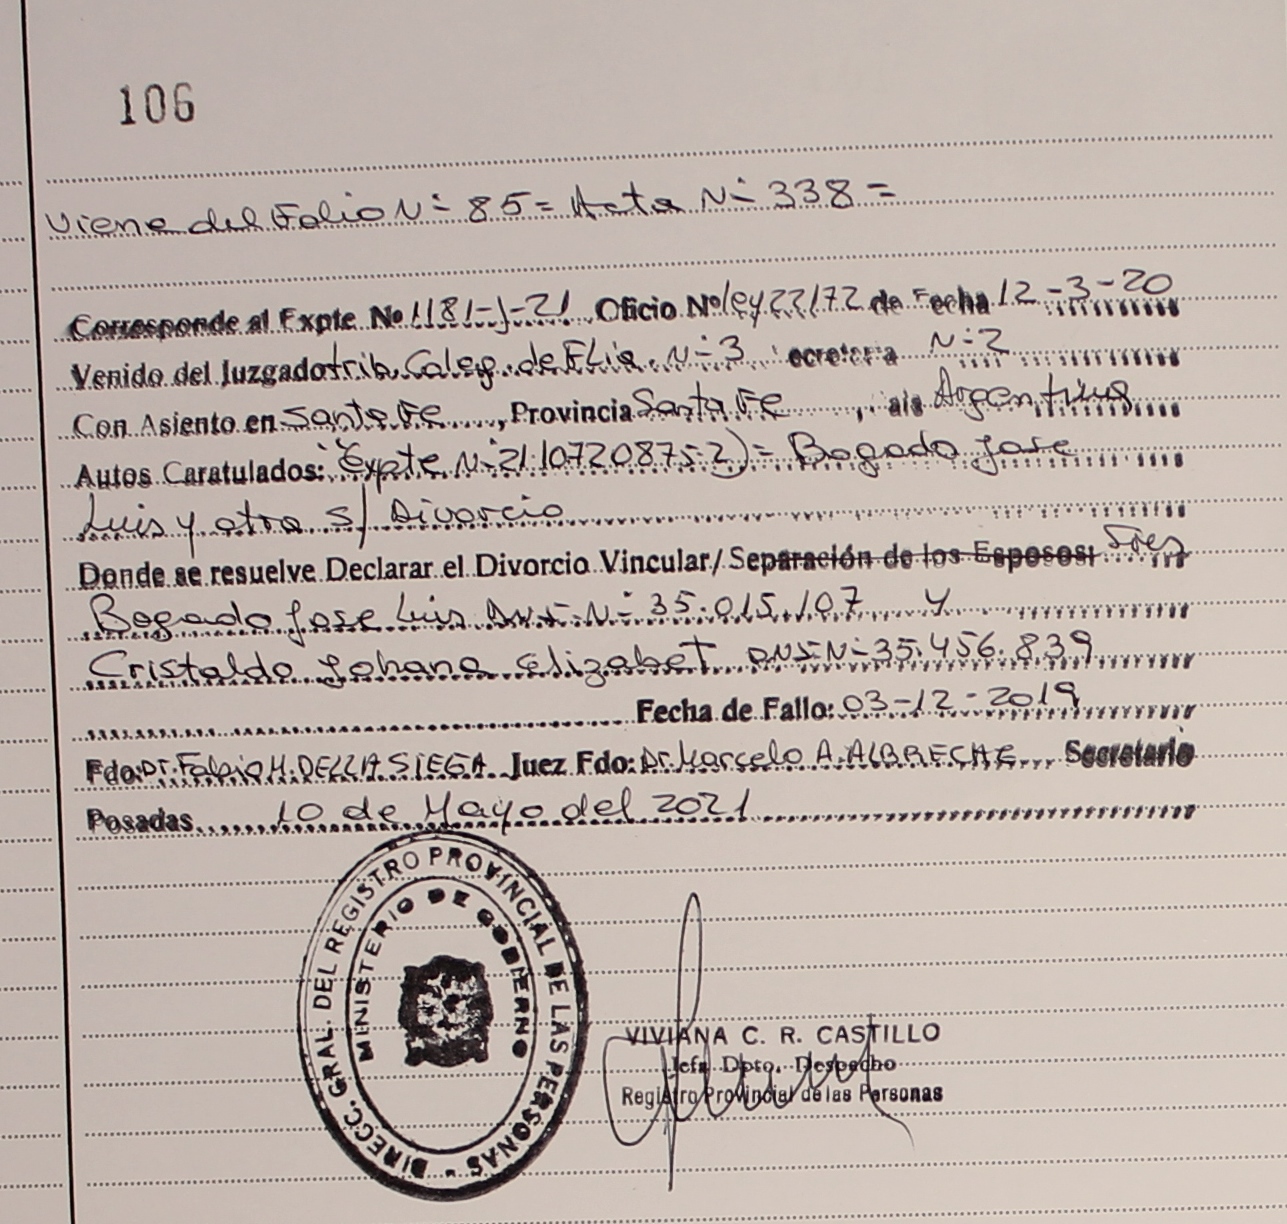 106
Viene del Folio N- 85 = Acta N- 338 =
Corresponde al Expte No 1181-J-21 Oficio Nº ley 22172 de Fecha 12-3-20
Venido del Juzgado trib. Coleg. de Flia. N-3 ecretaria N-2
Con Asiento en Santa Fe, Provincia Santa Fe, Argentina
Autos Caratulados: "Expte N-21.10720875-2) = Bogado Jose
Luis y otra s/ Divorcio
Donde se resuelve Declarar el Divorcio Vincular/ Separación de los Esposos:
Bogado Jose Luis DNI-N- 35.015.107 y
Cristaldo Johana Elizabet DNI-N-35.456.839
Fecha de Fallo: 03-12-2019
Fdo: Dr. Fabio H. DELLA SIEGA Juez Fdo: Dr. Marcelo A. ALBRECHE Secretario
Posadas 10 de Mayo del 2021
DIRECC. GRAL. DEL REGISTRO PROVINCIAL DE LAS PERSONAS
MINISTERIO DE GOBIERNO
VIVIANA C. R. CASTILLO
Jefa Dpto. Despacho
Registro Provincial de las Personas